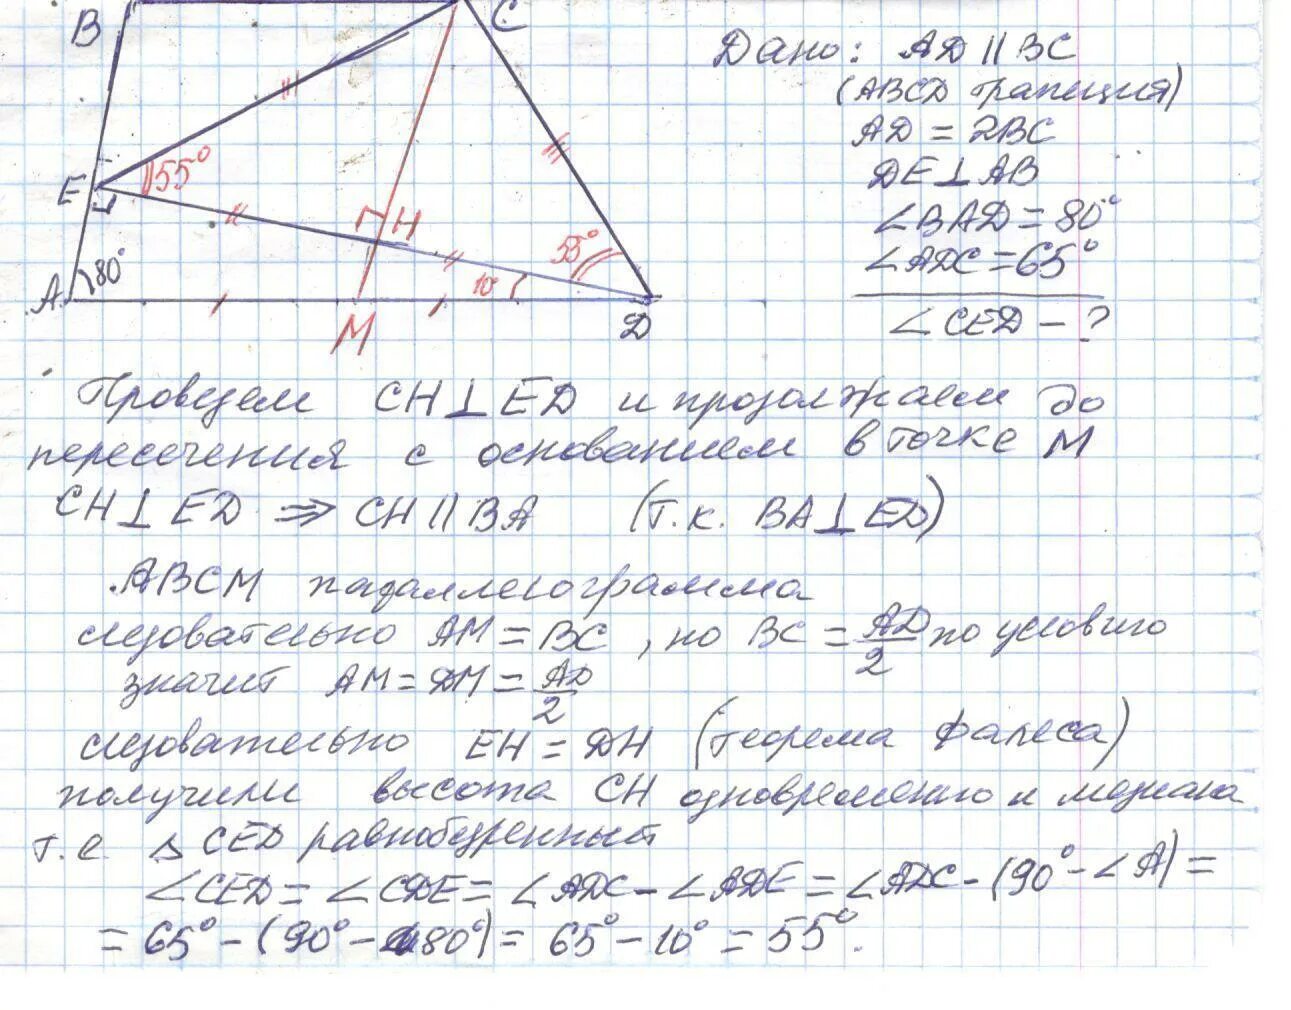 B
C
E
55°
H
55°
10°
A
80°
M
D
Дано: AD || BC
(ABCD трапеция)
AD = 2BC
DE ⊥ AB
∠BAD = 80°
∠ADC = 65°
∠CED - ?
Проведем CH ⊥ ED и продолжаем до
пересечения с основанием в точке M
CH ⊥ ED ⇒ CH || BA (т.к. BA ⊥ ED)
ABCM параллелограмма
следовательно AM = BC, но BC = AD/2 по условию
значит AM = DM = AD/2
следовательно EH = DH (теорема Фалеса)
получили высота CH одновременно и медиана
т.е. △ CED равнобедренный
∠CED = ∠CDE = ∠ADC - ∠ADE = ∠ADC - (90° - ∠A) =
= 65° - (90° - 80°) = 65° - 10° = 55°.